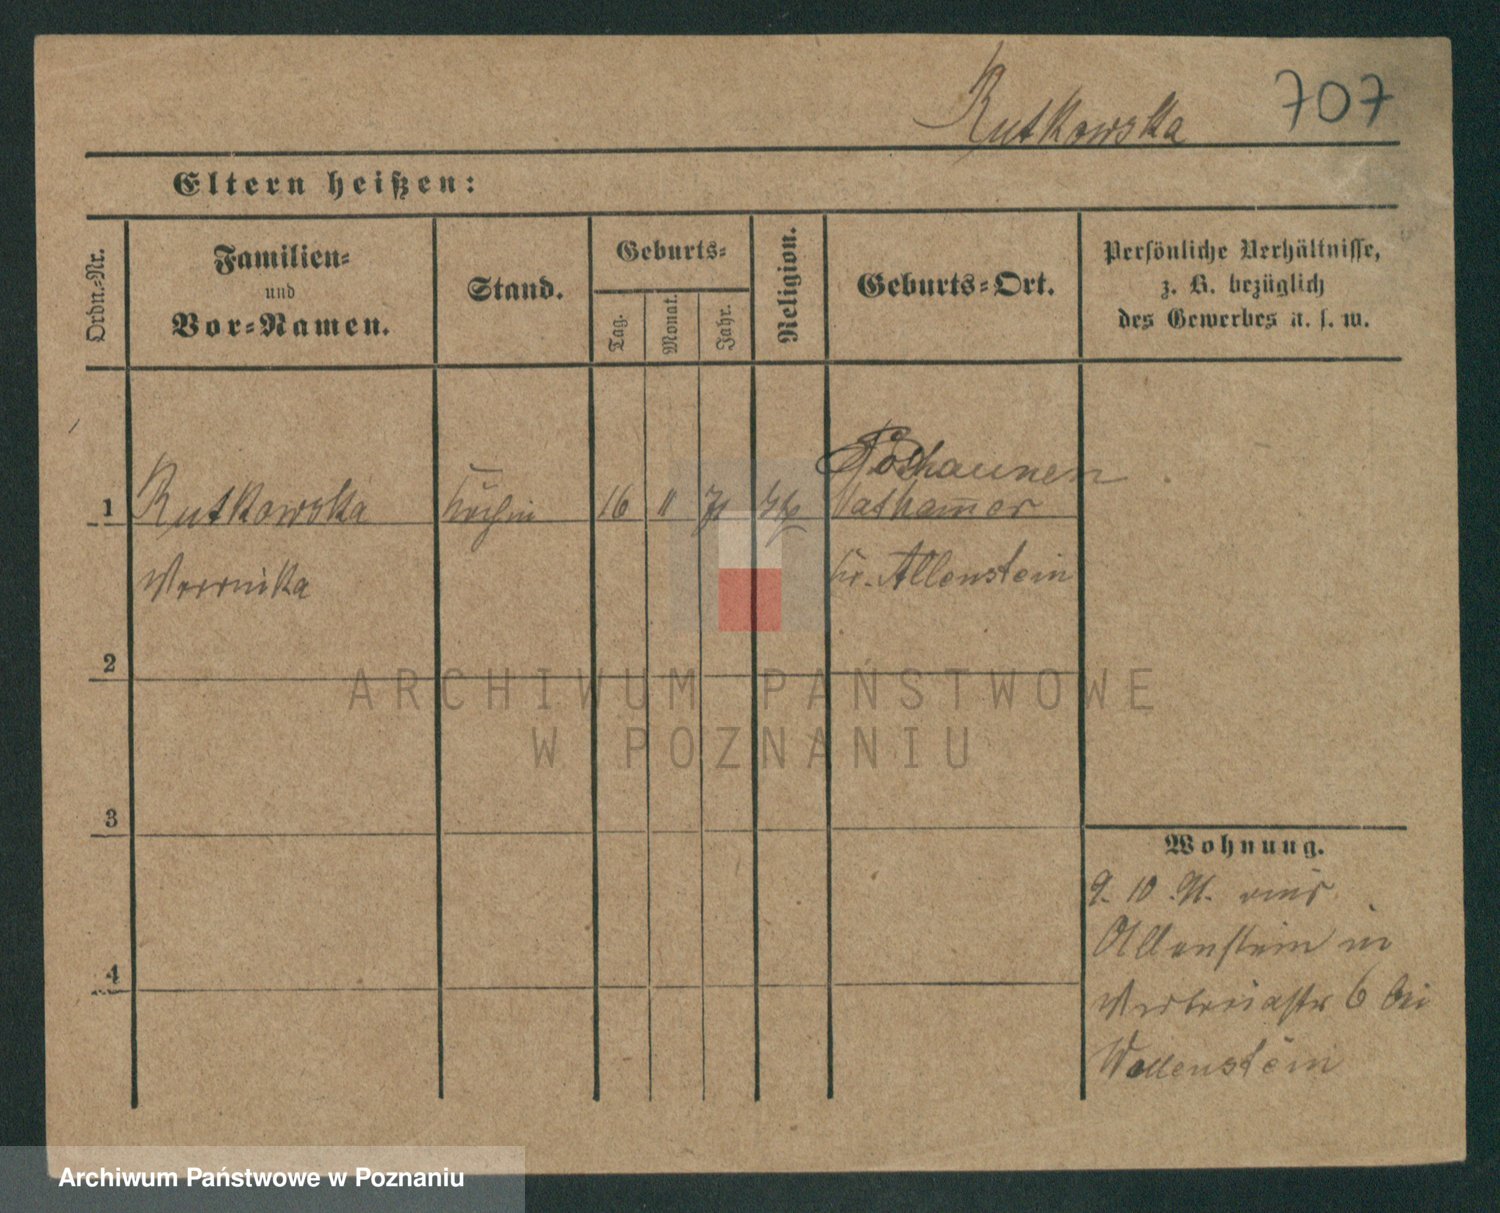 Rutkowska 707
Eltern heißen:
Ordn.-Nr.
Familien-
und
Vor-Namen.
Stand.
Geburts-
Tag.
Monat.
Jahr.
Religion.
Geburts-Ort.
Persönliche Verhältnisse,
z. B. bezüglich
des Gewerbes u. s. w.
1 Rutkowska Köchin 16 11 71 kth
Veronika
Kr. Allenstein
2
3
4
Wohnung.
9. 10. 91. aus
Allenstein in
6 bei
Wollenstein
ARCHIWUM PAŃSTWOWE
W POZNANIU
Archiwum Państwowe w Poznaniu